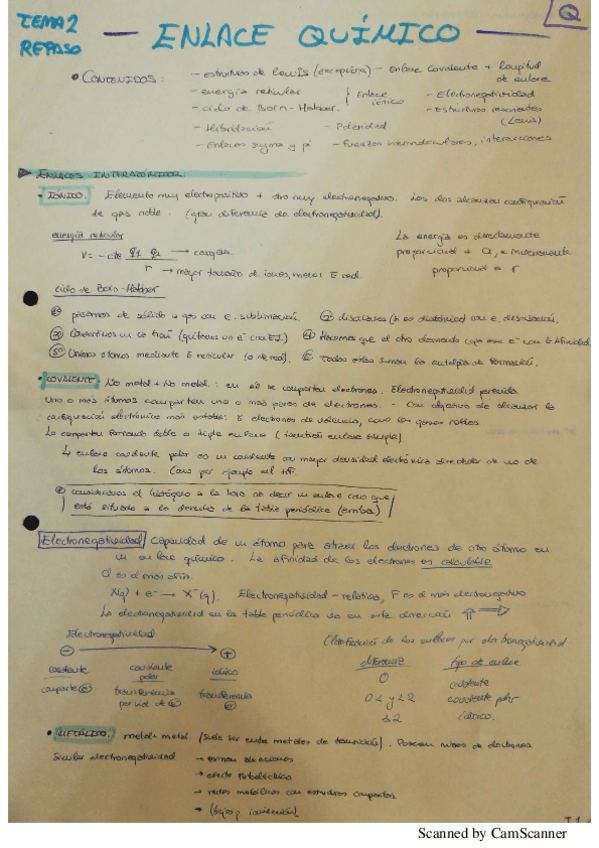 TEMA 2
REPASO
— ENLACE QUÍMICO —
Q
• CONTENIDOS:
- estructuras de Lewis (excepciones) - Enlace Covalente + longitud de enlace
- energía reticular
- ciclo de Born-Haber. } Enlace iónico
- Electronegatividad
- estructuras resonantes (Lewis)
- Hibridación - Polaridad
- Enlaces sigma y pi - Fuerzas intermoleculares, interacciones
ENLACES INTERATÓMICOS:
• IÓNICO. Elemento muy electropositivo + otro muy electronegativo. Los dos alcanzan configuración
de gas noble. (gran diferencia de electronegatividad).
energía reticular
V = - cte q1 q2 → cargas
r → mayor tamaño de iones, menor E red.
La energía es directamente
proporcional a Q, e inversamente
proporcional a r
Ciclo de Born-Haber
① pasamos de sólido a gas con e. sublimación. ② disociamos (si es diatómico) con e. disociación.
③ Convertimos un catión (quitamos un e⁻ con E.I.) ④ Hacemos que el otro elemento e⁻ con E. Afinidad.
⑤ Unimos átomos mediante E reticular (o de red). ⑥ Todas ellas suman la entalpía de formación.
• COVALENTE No metal + No metal: en él se comparten electrones. Electronegatividad parecida
Uno o más átomos comparten uno o más pares de electrones. - Con objetivo de alcanzar la
configuración electrónica más estable: 8 electrones de valencia, como los gases nobles.
Lo comparten formando doble o triple enlace (también enlace simple)
↳ enlace covalente polar es un covalente con mayor densidad electrónica alrededor de uno de
los átomos. Como por ejemplo el HF.
consideramos el hidrógeno a la hora de decir un enlace como que
está situado a la derecha de la tabla periódica (arriba)
Electronegatividad Capacidad de un átomo para atraer los electrones de otro átomo en
un enlace químico. La afinidad de los electrones es calculable
Cl es el más afín.
X(g) + e⁻ → X⁻(g). Electronegatividad - relativa, F es el más electronegativo
La electronegatividad en la tabla periódica va en esta dirección ⇑ ⇒
Electronegatividad
⊖ → ⊕
covalente covalente polar iónico
comparte e⁻ transferencia parcial de e⁻ transferencia e⁻
Clasificación de los enlaces por electronegatividad
Diferencia Tipo de enlace
0 covalente
0 < y < 2 covalente polar
≥ 2 iónico.
• METÁLICO. metal + metal. (suele ser entre metales de transición). Poseen nubes de electrones
Similar electronegatividad → forman aleaciones
→ efecto fotoeléctrico
→ redes metálicas con estructuras compactas
→ (baja ionización)
Scanned by CamScanner